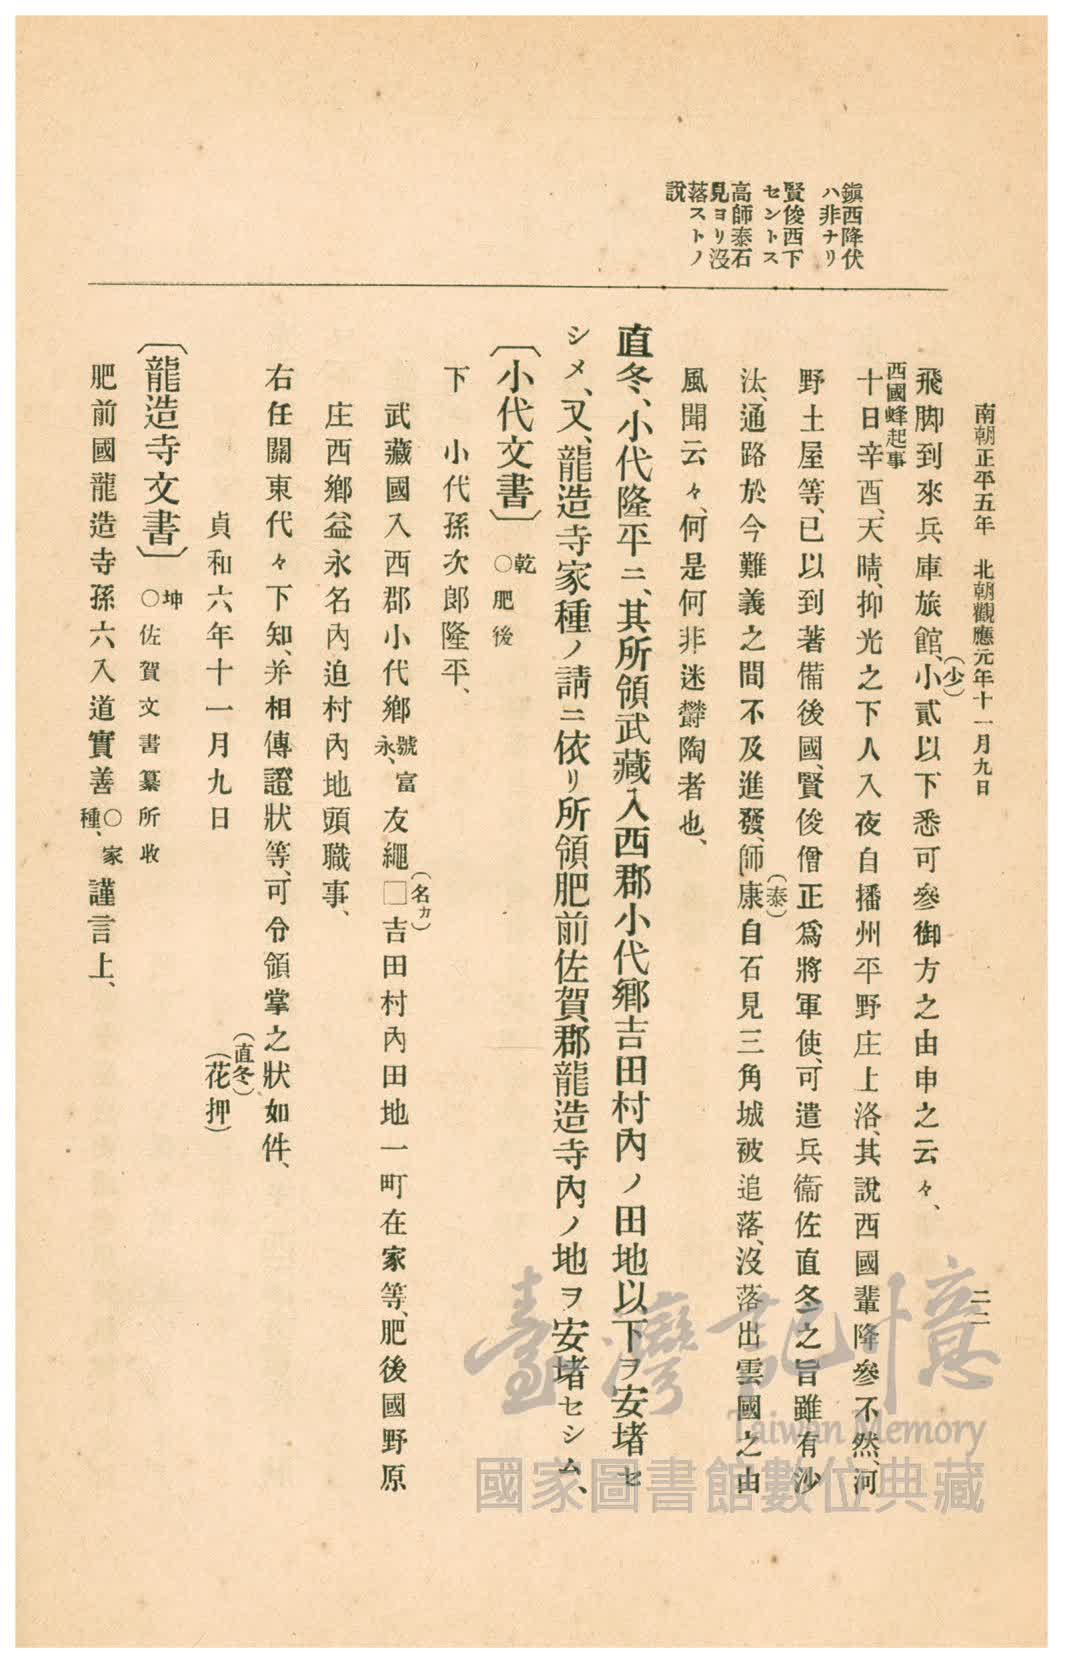 南朝正平五年　北朝觀應元年十一月九日
二二
鎭西降伏
ハ非ナリ
賢俊西下
セントス
高師泰石
見ヨリ沒
落ストノ
說
飛脚到來兵庫旅館、小(少)貳以下悉可參御方之由申之云々、
西國蜂起事
十日辛酉、天晴、抑光之下人入夜自播州平野庄上洛、其說西國輩降參不然、河
野土屋等、已以到著備後國、賢俊僧正爲將軍使、可遣兵衞佐直冬之旨雖有沙
汰、通路於今難義之間不及進發、師康(泰)自石見三角城被追落、沒落出雲國之由
風聞云々、何是何非迷欝陶者也、
直冬、小代隆平ニ、其所領武藏入西郡小代鄕吉田村內ノ田地以下ヲ安堵セ
シメ、又、龍造寺家種ノ請ニ依リ所領肥前佐賀郡龍造寺內ノ地ヲ安堵セシム、
〔小代文書〕　乾　○肥後
下　小代孫次郞隆平、
武藏國入西郡小代鄕號富永、友繩□(名カ)吉田村內田地一町在家等、肥後國野原
庄西鄕、益永名內迫村內地頭職事、
右任關東代々下知、幷相傳證狀等、可令領掌之狀如件、
貞和六年十一月九日
(直冬)
(花押)
〔龍造寺文書〕　坤　○佐賀文書纂所收
肥前國龍造寺孫六入道實善○家種、謹言上、
臺灣記憶
Taiwan Memory
國家圖書館數位典藏